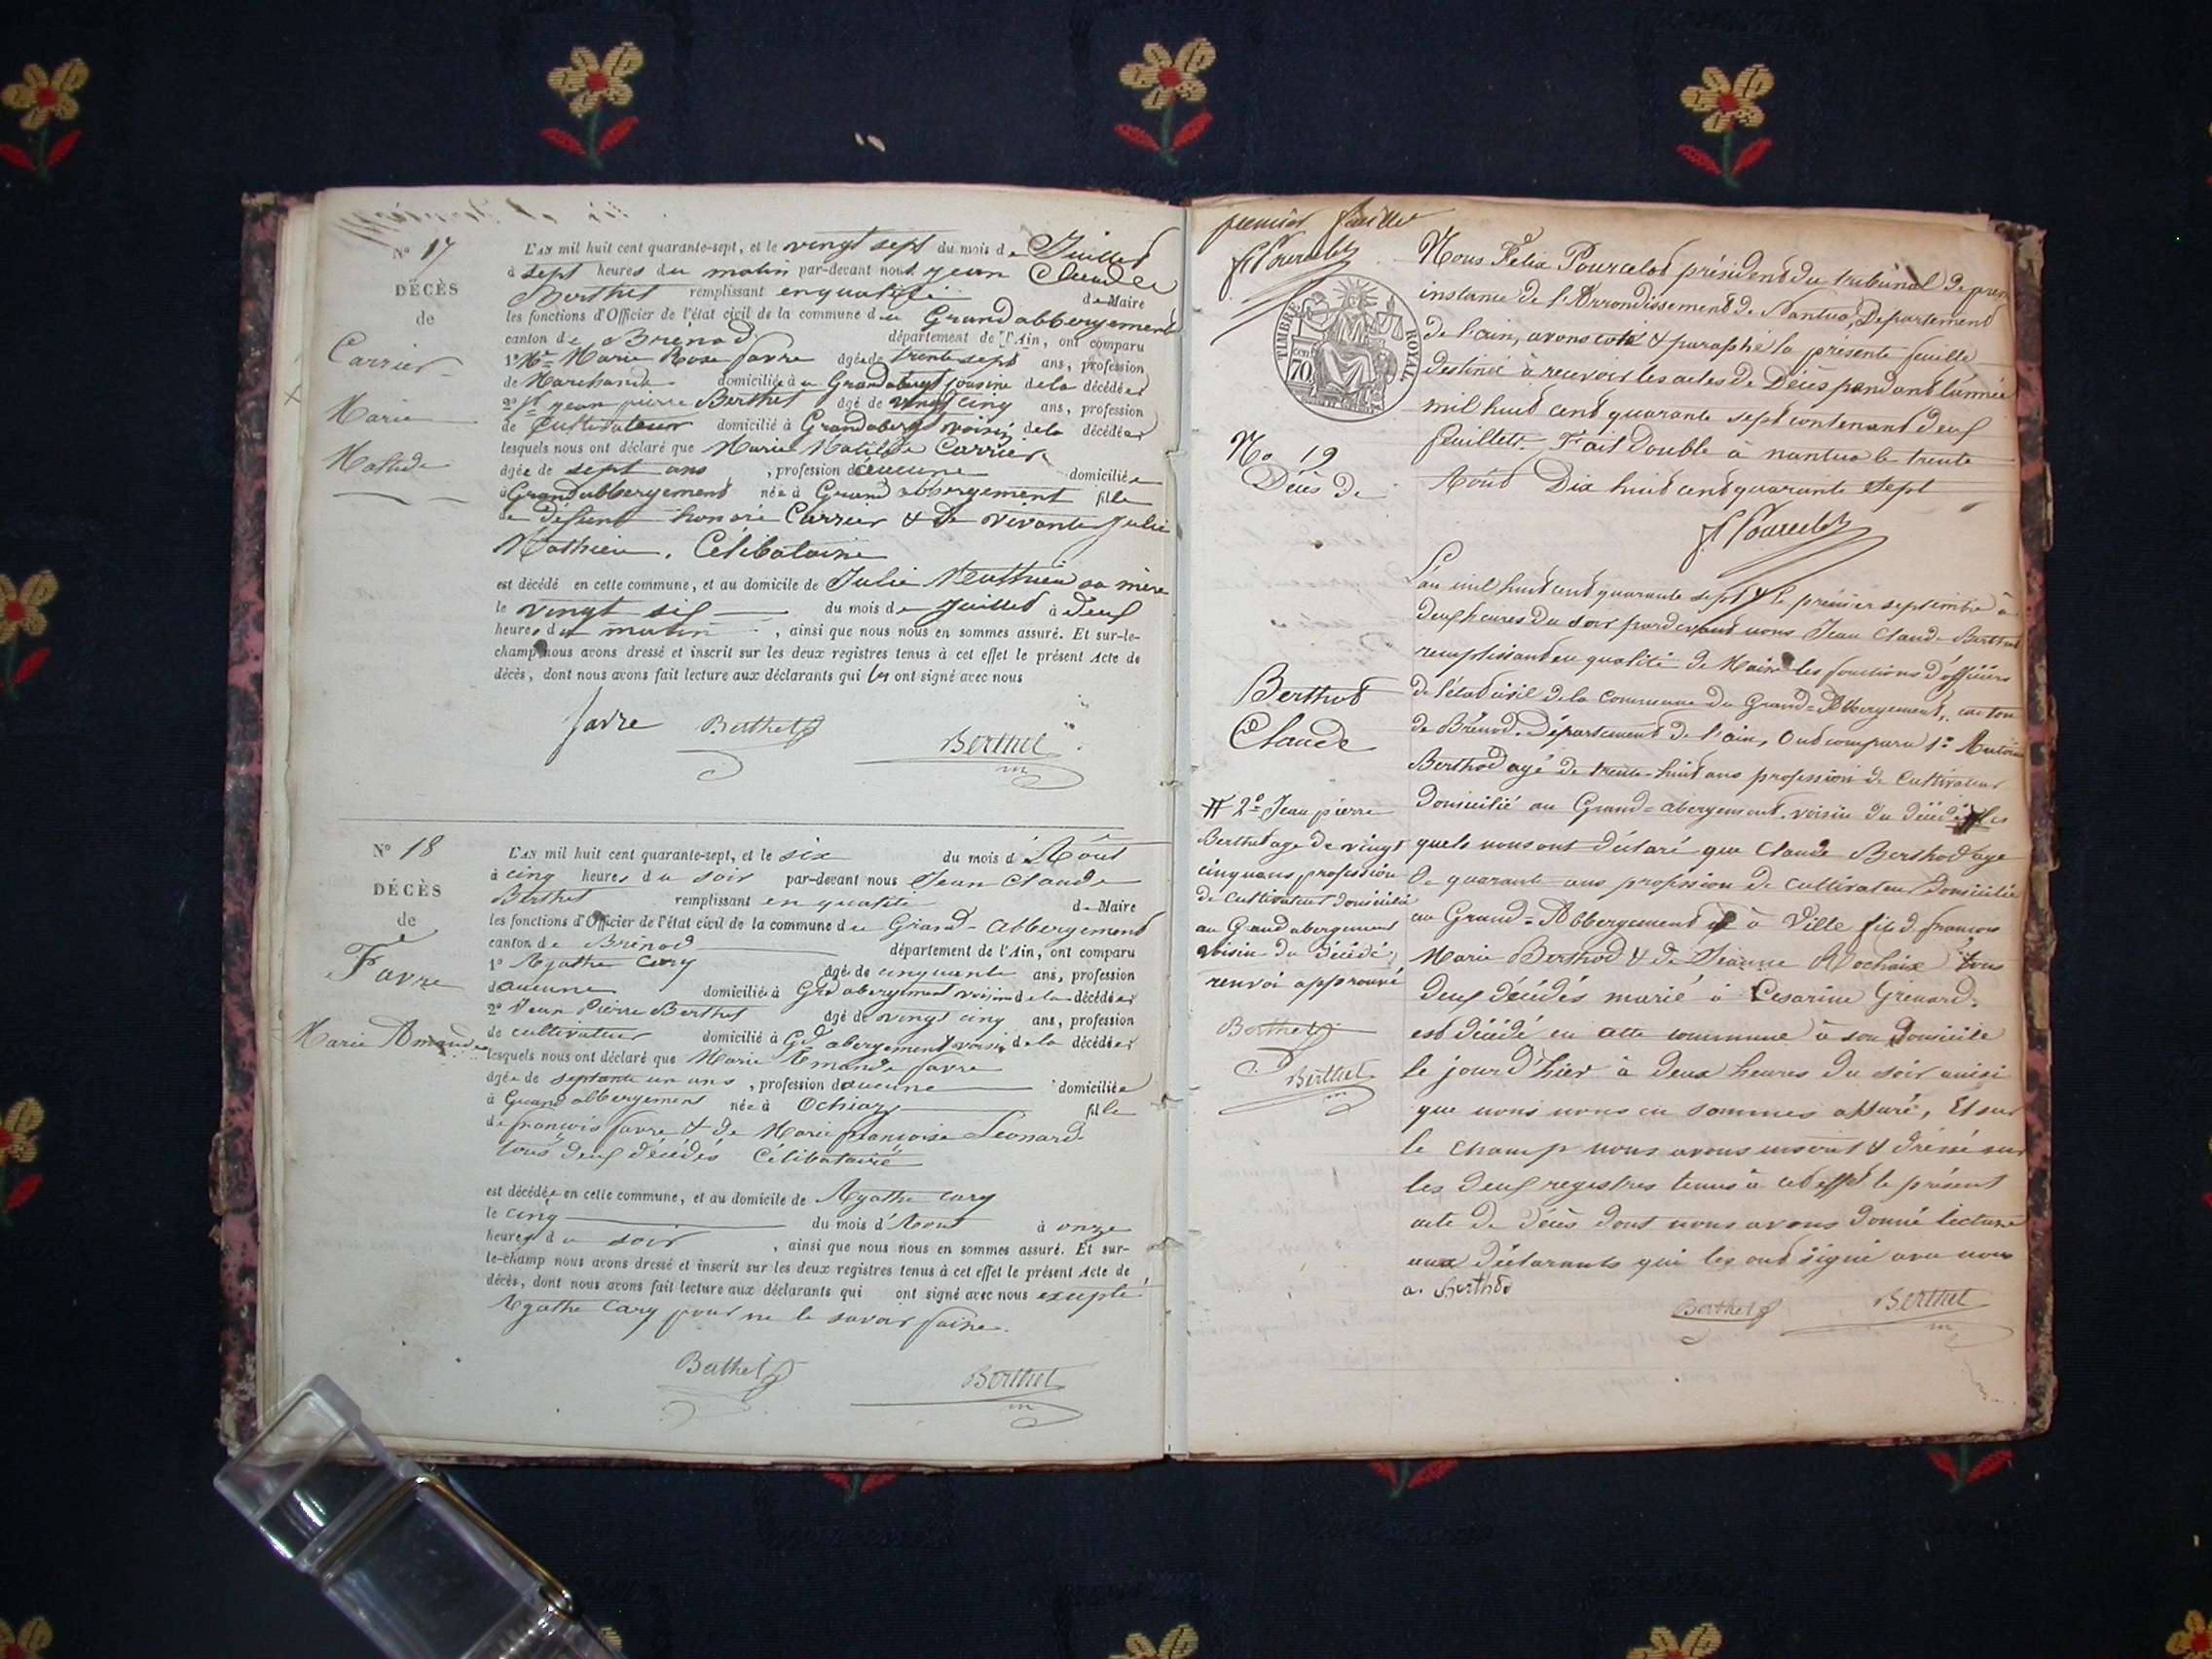 Nº 17
DÉCÈS
de
Carrier
Marie
Mathilde
L'AN mil huit cent quarante-sept, et le vingt sept du mois de Juillet
à sept heures du matin par-devant nous jean Claude
Berthet remplissant en qualité de Maire
les fonctions d'Officier de l'état civil de la commune du Grand abbergement
canton de Brénod département de l'Ain, ont comparu
1º Marie Rose favre agée de trente sept ans, profession
de Marchande domiciliée à Grand abergt cousine de la décédée
2º jean pierre Berthet agé de vingt cinq ans, profession
de Cultivateur domicilié à Grand aberg voisin de la décédée
lesquels nous ont déclaré que Marie Carrier
agée de sept ans, profession d'aucune domiciliée
à Grand abbergement née à Grand abbergement fille
de défunt honoré Carrier & de vivante Julie
Mathieu. Célibataire
est décédé en cette commune, et au domicile de Julie Mathieu sa mère
le vingt six du mois de Juillet à deux
heures du matin, ainsi que nous nous en sommes assuré. Et sur-le-
champ nous avons dressé et inscrit sur les deux registres tenus à cet effet le présent Acte de
décès, dont nous avons fait lecture aux déclarants qui les ont signé avec nous
favre Berthet Berthet
Nº 18
DÉCÈS
de
Favre
Marie Amande
L'AN mil huit cent quarante-sept, et le six du mois d'Août
à cinq heures du soir par-devant nous Jean Claude
Berthet remplissant en qualité de Maire
les fonctions d'Officier de l'état civil de la commune du Grand-abbergement
canton de Brénod département de l'Ain, ont comparu
1º Agathe Cary agée de cinquante ans, profession
d'aucune domiciliée à Grd abergement voisine de la décédée
2º Jean Pierre Berthet agé de vingt cinq ans, profession
de cultivateur domicilié à Gd abergement voisin de la décédée
lesquels nous ont déclaré que Marie Amande favre
agée de septante un ans, profession d'aucune domiciliée
à Grand abbergement née à Ochiaz fille
de françois favre & de Marie françoise Léonard
tous deux décédés Célibataire
est décédée en cette commune, et au domicile de Agathe Cary
le cinq du mois d'Août à onze
heures du soir, ainsi que nous nous en sommes assuré. Et sur-
le-champ nous avons dressé et inscrit sur les deux registres tenus à cet effet le présent Acte de
décès, dont nous avons fait lecture aux déclarants qui ont signé avec nous excepté
Agathe Cary pour ne le savoir faire.
Berthet Berthet
premier feuillet
f Pourcelot
TIMBRE ROYAL
70
cen
Nous Félix Pourcelot président du tribunal de prem
instance de l'Arrondissement de Nantua, Département
de l'ain, avons coté & paraphé la présente feuille
destinée à recevoir les actes de Décès pendant l'année
mil huit cent quarante sept contenant deux
feuillets. Fait double à nantua le trente
Août Dix huit cent quarante sept
f Pourcelot
No 19
Décès de
Berthod
Claude
L'an mil huit cent quarante sept & le premier septembre à
deux heures du soir pardevant nous Jean Claude Berthet
remplissant en qualité de Maire les fonctions d'officiers
de l'état civil de la Commune du Grand=Abbergement, canton
de Brénod. Département de l'ain, Ont comparu 1º Antoine
Berthod agé de trente-huit ans profession de Cultivateur
domicilié au Grand=abergement. voisin du décédé les
quels nous ont déclaré que Claude Berthod age
de quarante ans profession de cultivateur domicilié
au Grand=Abbergement à Ville fils de françois
Marie Berthod & de Jeanne Rochaix tous
deux décédés marié à Cesarine Grenard.
est décédé en cette commune à son Domicile
le jour d'hier à deux heures du soir ainsi
que nous nous en sommes assuré, Et sur
le champ nous avons inscrit & dressé sur
les deux registres tenus à cet effet le présent
acte de Décès dont nous avons donné lecture
aux déclarants qui les ont signé avec nous
a. berthod
Berthet Berthet
# 2º Jean pierre
Berthet age de vingt
cinq ans profession
de cultivateur domicilié
au Grand abergement
voisin du décédé
renvoi approuvé
Berthet
Berthet